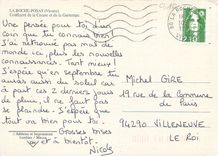 LA ROCHE-POSAY (Vienne)
Confluent de la Creuse et de la Gartempe
Une pensée pour toi, d'un
coin que tu connais bien!
J'ai retrouvé pas mal de
monde ici, plus les nouvelles
connaissances. Tant mieux!
J'espère qu'en septembre, tu
seras aussi du nombre.
Il a fait chaud ces 2 derniers
jours, il ne faut pas
se plaindre. J'espère que
tout va bien pour toi.
Grosses bises
et à bientôt.
Nicole
Michel GIRE
19 rue de la Commune
de Paris
94290 VILLENEUVE
LE ROI
2,10